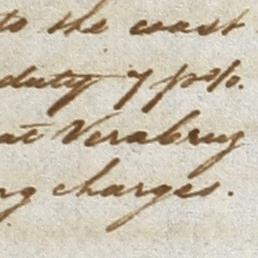 to the coast
duty 7 p%.
at Verabruz
ng charges.